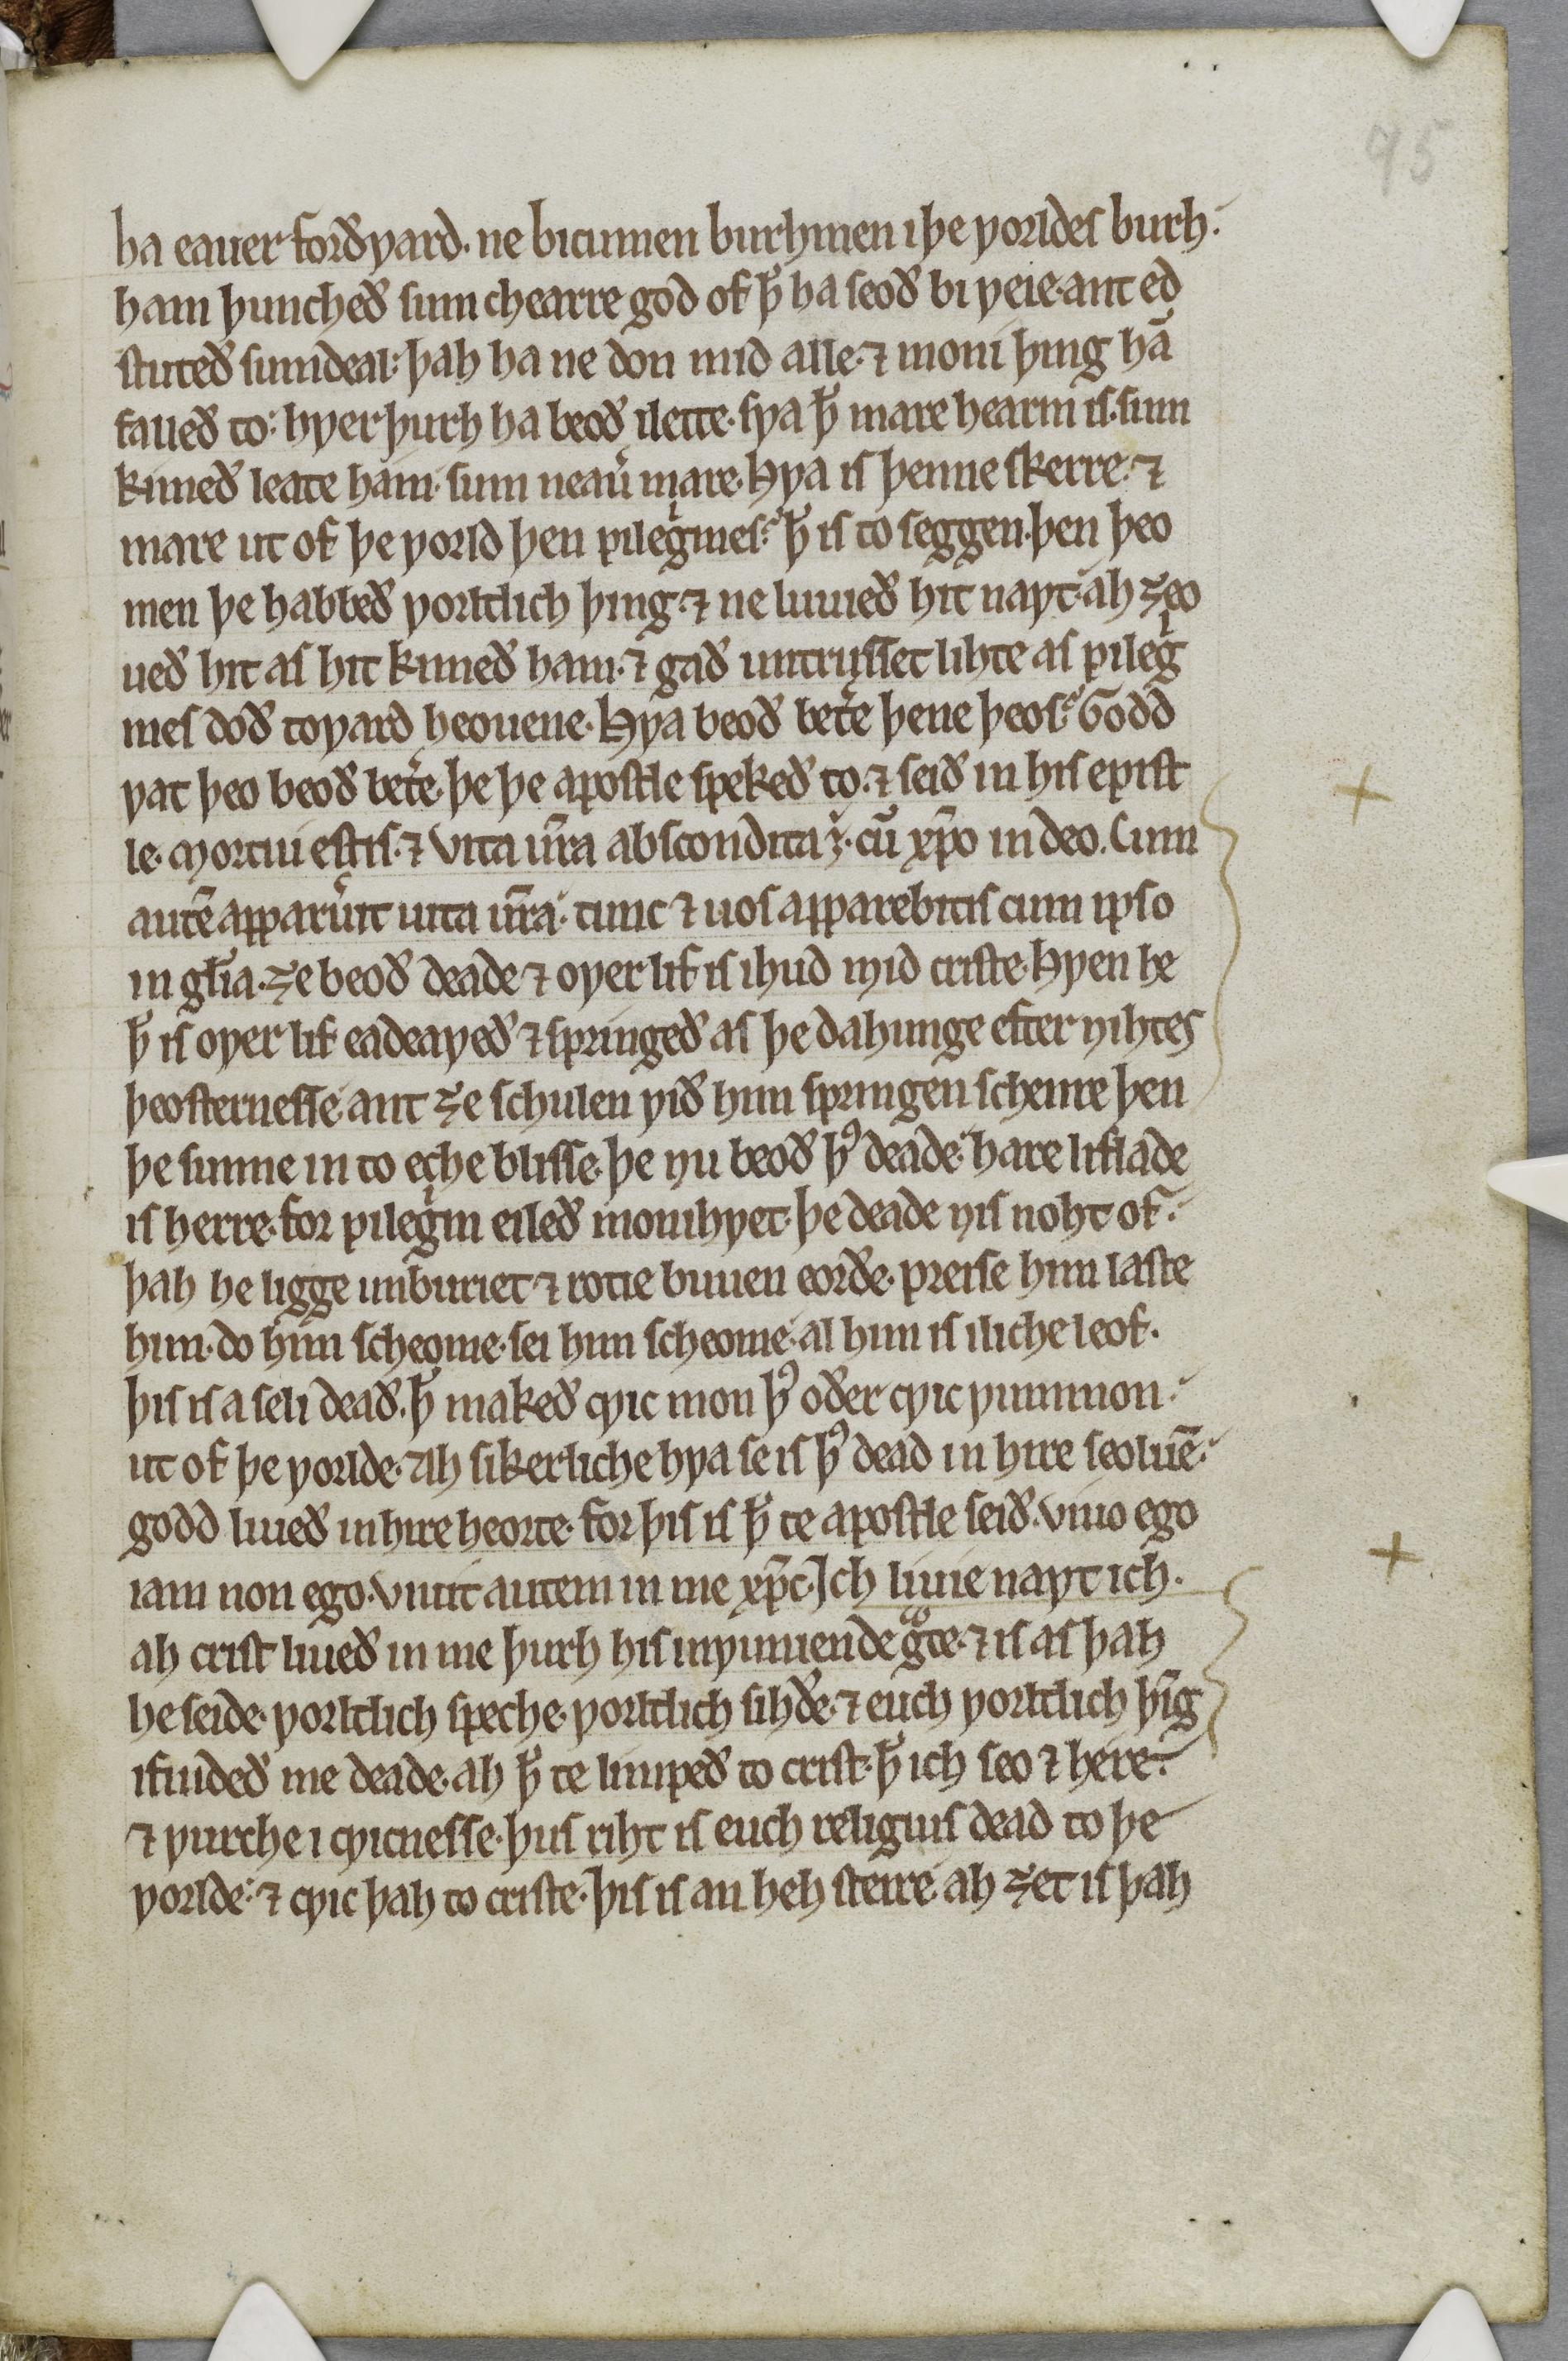 95
ha eauer forðƿard. ne bicumen burhmen i þe ƿorldes burh.
ham þuncheð sum chearre god of ꝥ ha seoð bi ƿeie. ant ed
stuteð sumdeal. þah ha ne don mid alle. ⁊ moni þing hā
faueð to. hƿer þurh ha beoð ilette. sƿa ꝥ mare hearm is. sum
kimeð leate ham. sum neau͛ mare. Hƿa is þenne skerre. ⁊
mare ut of þe ƿorld þen pilegͥmes. ꝥ is to seggen. þen þeo
men þe habbeð ƿorltlich þing. ⁊ ne luuieð hit naƿt. ah ȝeo
ueð hit as hit kimeð ham. ⁊ gað untrusset lihte as pilegͥ
mes doð toƿard heouene. Hƿa beoð bet͛e þene þeos. Godd
ƿat þeo beoð bet͛e. þe þe apostle spekeð to. ⁊ seið in his epist
le. Mortui estis. ⁊ vita ur̄a abscondita ÷. cū xp̄o in deo. Cum
autē apparu͛it uita ur̄a. tunc ⁊ uos apparebitis cum ipso
in gl̄ia. ȝe beoð deade ⁊ oƿer lif is ihud mid criste. Hƿen he
ꝥ is oƿer lif eadeaƿeð ⁊ springeð as þe dahunge efter nihtes
þeosternesse. ant ȝe schulen ƿið him springen schenre þen
þe sunne in to eche blisse. þe nu beoð þꝰ deade. hare liflade
is herre. for pilegͥm eileð monihƿet. þe deade nis noht of.
þah he ligge unburiet ⁊ rotie buuen eorðe. preise him laste
him. do him scheome. sei him scheome. al him is iliche leof.
þis is a seli deað. ꝥ makeð cƿic mon þꝰ oðer cƿic ƿummon.
ut of þe ƿorlde. Ah sikerliche hƿa se is þꝰ dead in hire seoluē.
godd liueð in hire heorte. for þis is ꝥ te apostle seið. Viuo ego
iam non ego. Viuit autem in me xp̄c. Ich liuie naƿt ich.
ah crist liueð in me þurh his inƿuniende gͣce. ⁊ is as þah
he seide. ƿorltlich speche. ƿorltlich sihðe. ⁊ euch ƿorltlich þīg
ifindeð me deade. ah ꝥ te limpeð to crist. ꝥ ich seo ⁊ here.
⁊ ƿurche i cƿicnesse. þus riht is euch religius dead to þe
ƿorlde. ⁊ cƿic þah to criste. þis is an heh steire. ah ȝet is þah